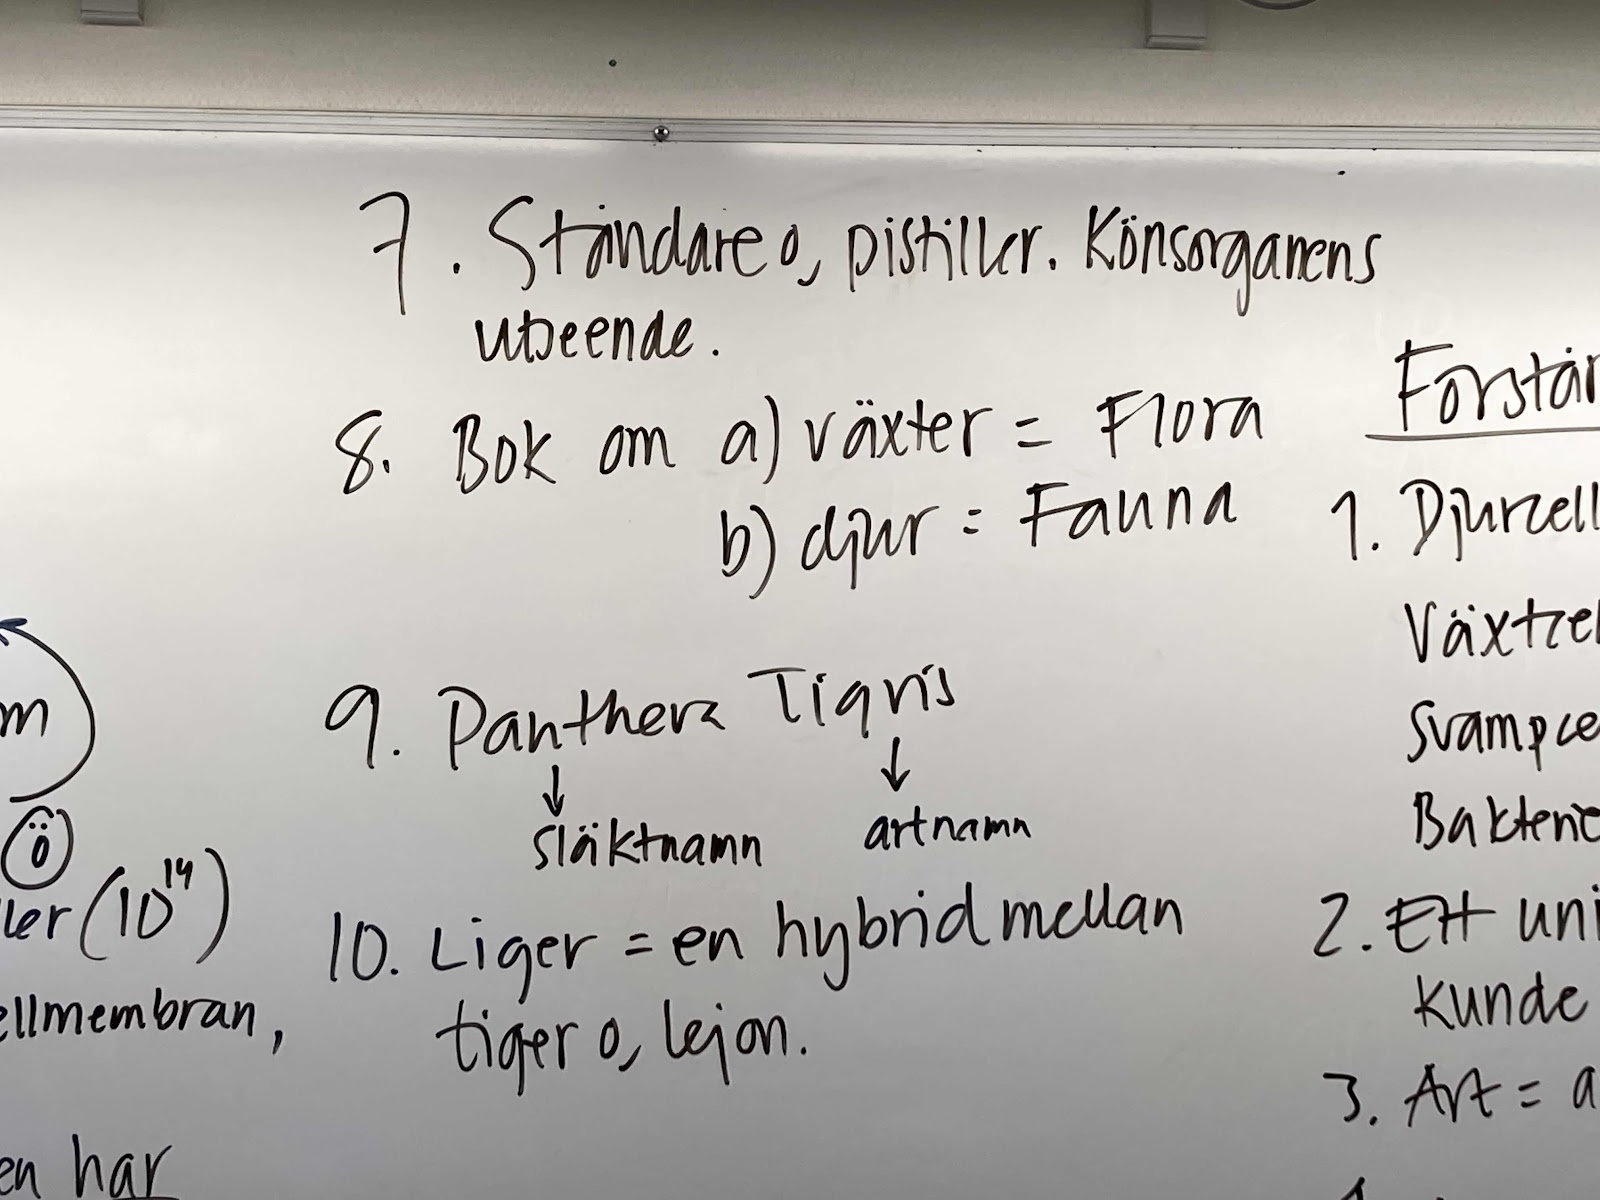 7. Ståndare o, pistiller. Könsorganens
utseende.
8. Bok om a) växter = Flora
b) djur = Fauna
9. Panthera Tigris
släktnamn artnamn
10. Liger = en hybrid mellan
tiger o, lejon.
m
Ö
ler (10^14)
ellmembran,
en har
Förstår
1. Djurcell
Växtcel
Svampce
Bakterie
2. Ett uni
kunde
3. Art = a